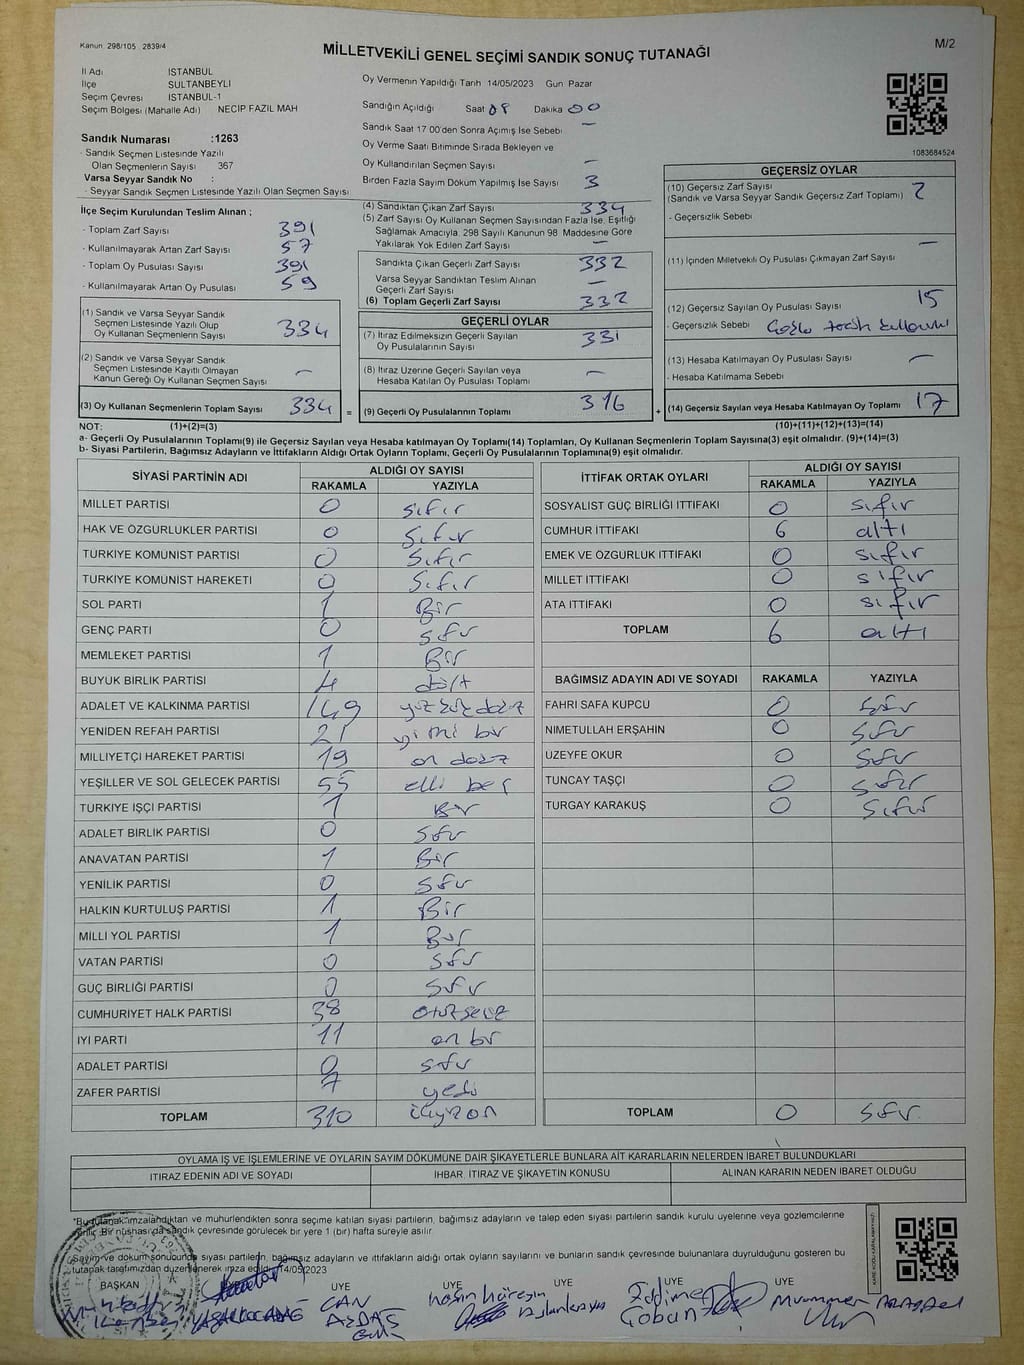 Kanun: 298/105 . 2839/4
MİLLETVEKİLİ GENEL SEÇİMİ SANDIK SONUÇ TUTANAĞI
M/2
İl Adı ISTANBUL
İlçe SULTANBEYLI
Seçim Çevresi ISTANBUL-1
Seçim Bölgesi (Mahalle Adı) NECIP FAZIL MAH
Oy Vermenin Yapıldığı Tarih 14/05/2023 Gün Pazar
Sandığın Açıldığı Saat 08 Dakika 00
Sandık Saat 17 00'den Sonra Açımış İse Sebebi –
Oy Verme Saati Bitiminde Sırada Bekleyen ve
Oy Kullandırılan Seçmen Sayısı –
Birden Fazla Sayım Döküm Yapılmış İse Sayısı 3
1083684524
Sandık Numarası :1263
- Sandık Seçmen Listesinde Yazılı
Olan Seçmenlerin Sayısı 367
Varsa Seyyar Sandık No :
- Seyyar Sandık Seçmen Listesinde Yazılı Olan Seçmen Sayısı
İlçe Seçim Kurulundan Teslim Alınan ;
- Toplam Zarf Sayısı 391
- Kullanılmayarak Artan Zarf Sayısı 57
- Toplam Oy Pusulası Sayısı 391
- Kullanılmayarak Artan Oy Pusulası 59
(1) Sandık ve Varsa Seyyar Sandık
Seçmen Listesinde Yazılı Olup
Oy Kullanan Seçmenlerin Sayısı 334
(2) Sandık ve Varsa Seyyar Sandık
Seçmen Listesinde Kayıtlı Olmayan
Kanun Gereği Oy Kullanan Seçmen Sayısı –
(3) Oy Kullanan Seçmenlerin Toplam Sayısı 334 =
(4) Sandıktan Çıkan Zarf Sayısı 334
(5) Zarf Sayısı Oy Kullanan Seçmen Sayısından Fazla İse, Eşitliği
Sağlamak Amacıyla, 298 Sayılı Kanunun 98 Maddesine Göre
Yakılarak Yok Edilen Zarf Sayısı –
Sandıkta Çıkan Geçerli Zarf Sayısı 332
Varsa Seyyar Sandıktan Teslim Alınan
Geçerli Zarf Sayısı –
(6) Toplam Geçerli Zarf Sayısı 332
GEÇERLİ OYLAR
(7) İtiraz Edilmeksizin Geçerli Sayılan
Oy Pusulalarının Sayısı 331
(8) İtiraz Üzerine Geçerli Sayılan veya
Hesaba Katılan Oy Pusulası Toplamı –
(9) Geçerli Oy Pusulalarının Toplamı 316 +
GEÇERSİZ OYLAR
(10) Geçersiz Zarf Sayısı
(Sandık ve Varsa Seyyar Sandık Geçersiz Zarf Toplamı) 2
- Geçersizlik Sebebi
–
(11) İçinden Milletvekili Oy Pusulası Çıkmayan Zarf Sayısı
(12) Geçersiz Sayılan Oy Pusulası Sayısı 15
- Geçersizlik Sebebi
(13) Hesaba Katılmayan Oy Pusulası Sayısı –
- Hesaba Katılmama Sebebi
(14) Geçersiz Sayılan veya Hesaba Katılmayan Oy Toplamı 17
NOT: (1)+(2)=(3) (10)+(11)+(12)+(13)=(14)
a- Geçerli Oy Pusulalarının Toplamı(9) ile Geçersiz Sayılan veya Hesaba katılmayan Oy Toplamı(14) Toplamları, Oy Kullanan Seçmenlerin Toplam Sayısına(3) eşit olmalıdır. (9)+(14)=(3)
b- Siyasi Partilerin, Bağımsız Adayların ve İttifakların Aldığı Ortak Oyların Toplamı, Geçerli Oy Pusulalarının Toplamına(9) eşit olmalıdır.
SİYASİ PARTİNİN ADI ALDIĞI OY SAYISI
RAKAMLA YAZIYLA
MILLET PARTISI 0 sıfır
HAK VE ÖZGURLUKLER PARTISI 0 sıfır
TURKIYE KOMUNIST PARTISI 0 sıfır
TURKIYE KOMUNIST HAREKETI 0 sıfır
SOL PARTI 1 Bir
GENÇ PARTI 0 sıfır
MEMLEKET PARTISI 1 Bir
BUYUK BIRLIK PARTISI 4 dört
ADALET VE KALKINMA PARTISI 149 yüz kırk dokuz
YENIDEN REFAH PARTISI 21 yirmi bir
MILLIYETÇI HAREKET PARTISI 19 on dokuz
YEŞILLER VE SOL GELECEK PARTISI 55 elli beş
TURKIYE IŞÇI PARTISI 1 Bir
ADALET BIRLIK PARTISI 0 sıfır
ANAVATAN PARTISI 1 Bir
YENILIK PARTISI 0 sıfır
HALKIN KURTULUŞ PARTISI 1 Bir
MILLI YOL PARTISI 1 Bir
VATAN PARTISI 0 sıfır
GUÇ BIRLIĞI PARTISI 0 sıfır
CUMHURIYET HALK PARTISI 38 otuz sekiz
IYI PARTI 11 on bir
ADALET PARTISI 0 sıfır
ZAFER PARTISI 7 yedi
TOPLAM 310 üçyüzon
İTTİFAK ORTAK OYLARI ALDIĞI OY SAYISI
RAKAMLA YAZIYLA
SOSYALIST GUÇ BIRLIĞI ITTIFAKI 0 sıfır
CUMHUR ITTIFAKI 6 altı
EMEK VE ÖZGURLUK ITTIFAKI 0 sıfır
MILLET ITTIFAKI 0 sıfır
ATA ITTIFAKI 0 sıfır
TOPLAM 6 altı
BAĞIMSIZ ADAYIN ADI VE SOYADI RAKAMLA YAZIYLA
FAHRI SAFA KUPCU 0 sıfır
NIMETULLAH ERŞAHIN 0 sıfır
UZEYFE OKUR 0 sıfır
TUNCAY TAŞÇI 0 sıfır
TURGAY KARAKUŞ 0 sıfır
TOPLAM 0 sıfır
OYLAMA İŞ VE İŞLEMLERİNE VE OYLARIN SAYIM DÖKÜMÜNE DAİR ŞİKAYETLERLE BUNLARA AİT KARARLARIN NELERDEN İBARET BULUNDUKLARI
İTİRAZ EDENİN ADI VE SOYADI İHBAR, İTİRAZ VE ŞİKAYETİN KONUSU ALINAN KARARIN NEDEN İBARET OLDUĞU
*Bu tutanak imzalandıktan ve mühürlendikten sonra seçime katılan siyasi partilerin, bağımsız adayların ve talep eden siyasi partilerin sandık kurulu üyelerine veya gözlemcilerine
verilir. Bir nüshası da sandık çevresinde görülecek bir yere 1 (bir) hafta süreyle asılır
Sayım ve döküm sonucunda siyasi partilerin, bağımsız adayların ve ittifakların aldığı ortak oyların sayılarını ve bunların sandık çevresinde bulunanlara duyrulduğunu gösteren bu
tutanak tarafımızdan düzenlenerek imza edildi. 14/05/2023
BAŞKAN ÜYE ÜYE ÜYE ÜYE
CAN
Çoban
Muammer